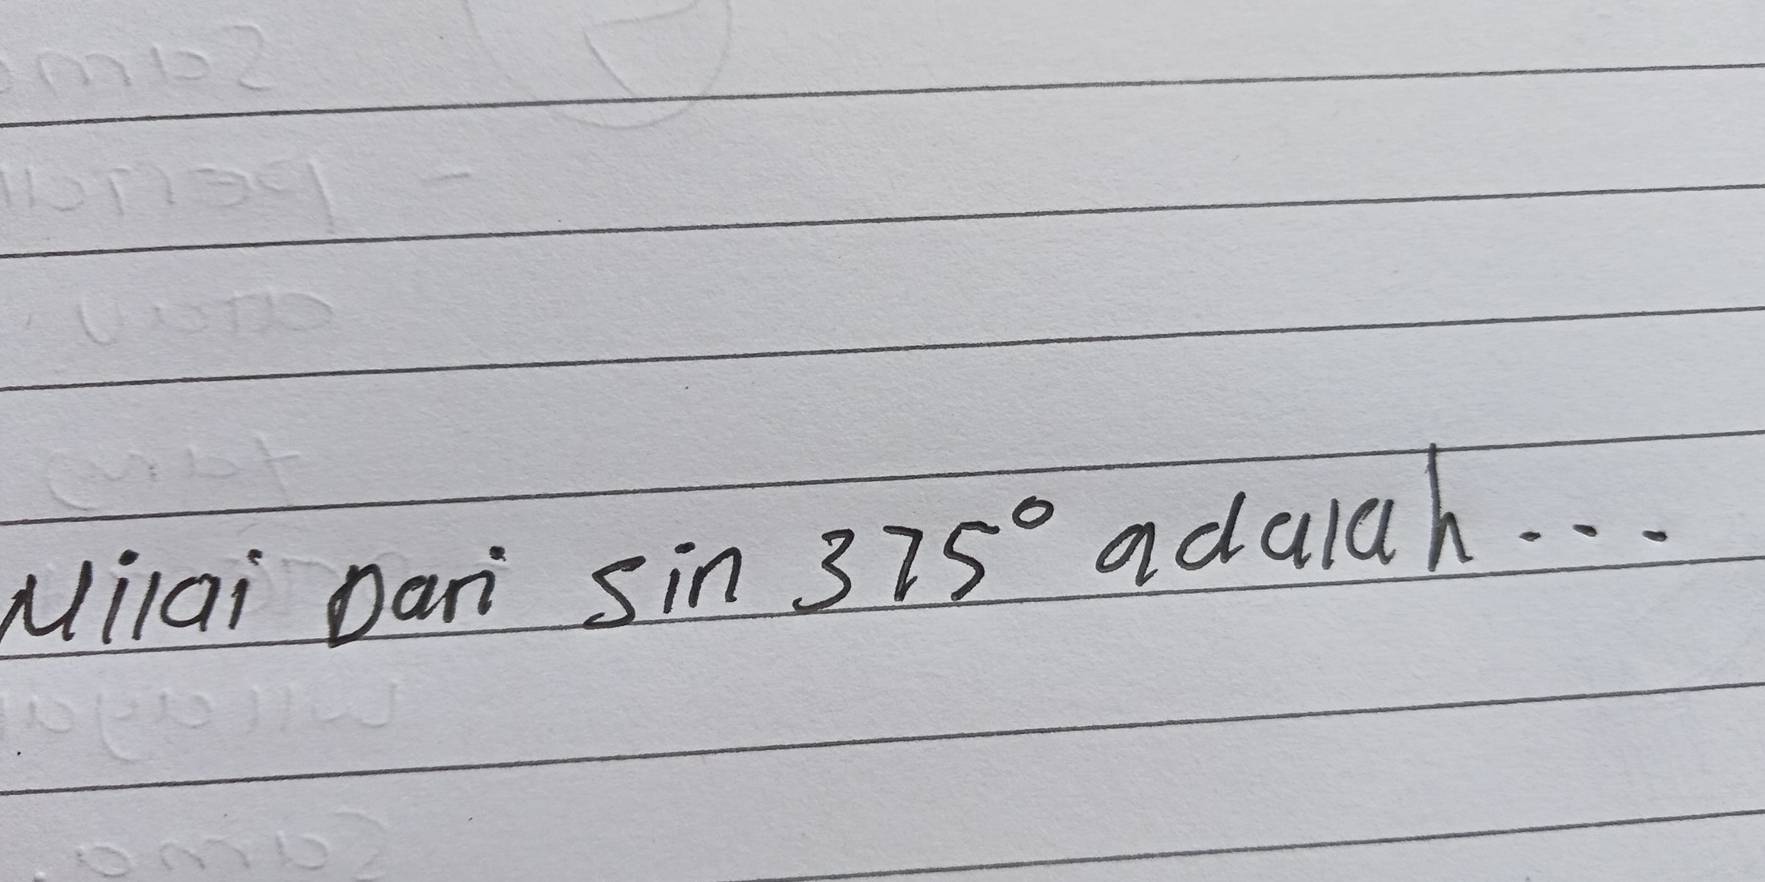 Nilai Dari sin 375° adalah...